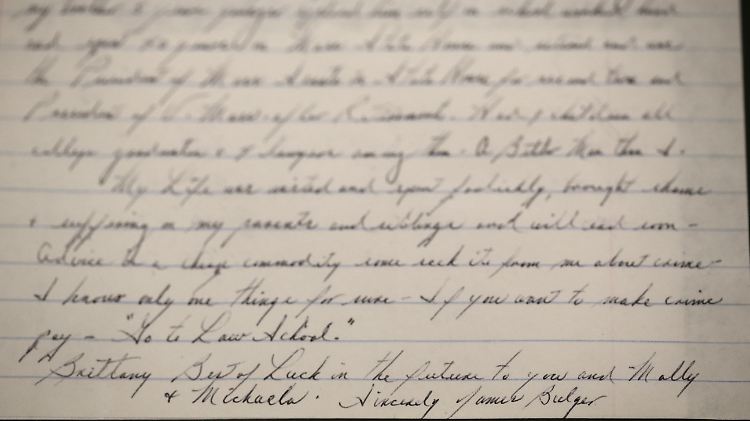 my brother
and spent in Mass State House and retired and was
the President of Mass Senate in State House for and
President of U. Mass. after Retirement. Had 9 children all
college graduates & 4 lawyers among them. A Better Man than I.
My Life was wasted and spent foolishly, brought shame
& suffering on my parents and siblings and will end soon -
Advice is a cheap commodity some seek it from me about crime -
I know only one thing for sure - If you want to make crime
pay - "Go to Law School."
Brittany Best of Luck in the future to you and Molly
& Michaela. Sincerely James Bulger